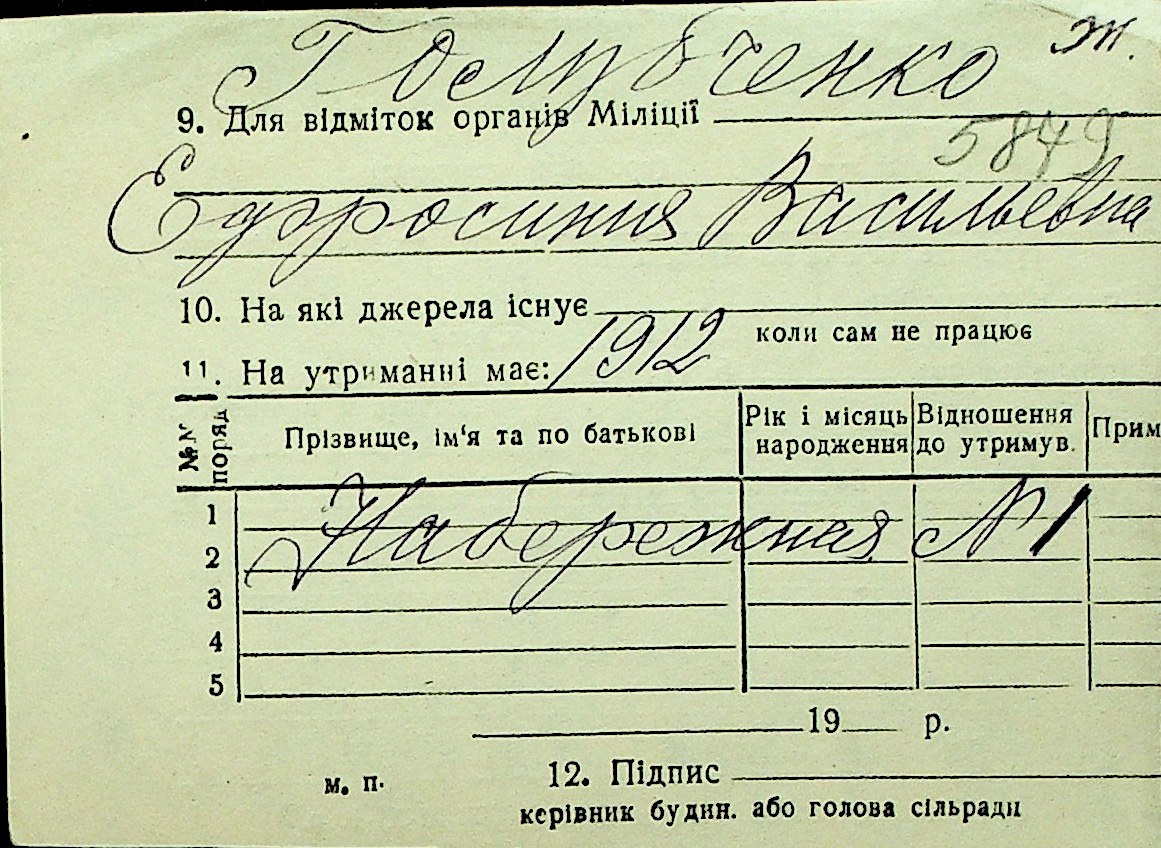 Голубченко т.
9. Для відміток органів Міліції
5849
Едфросиния Васильевна
10. На які джерела існує
коли сам не працює
11. На утриманні має: 1912
№№ поряд
Прізвище, ім'я та по батькові
Рік і місяць народження
Відношення до утримув.
Прим
1
Набережная №1
2
3
4
5
19 р.
м. п.
12. Підпис
керівник будин. або голова сільради